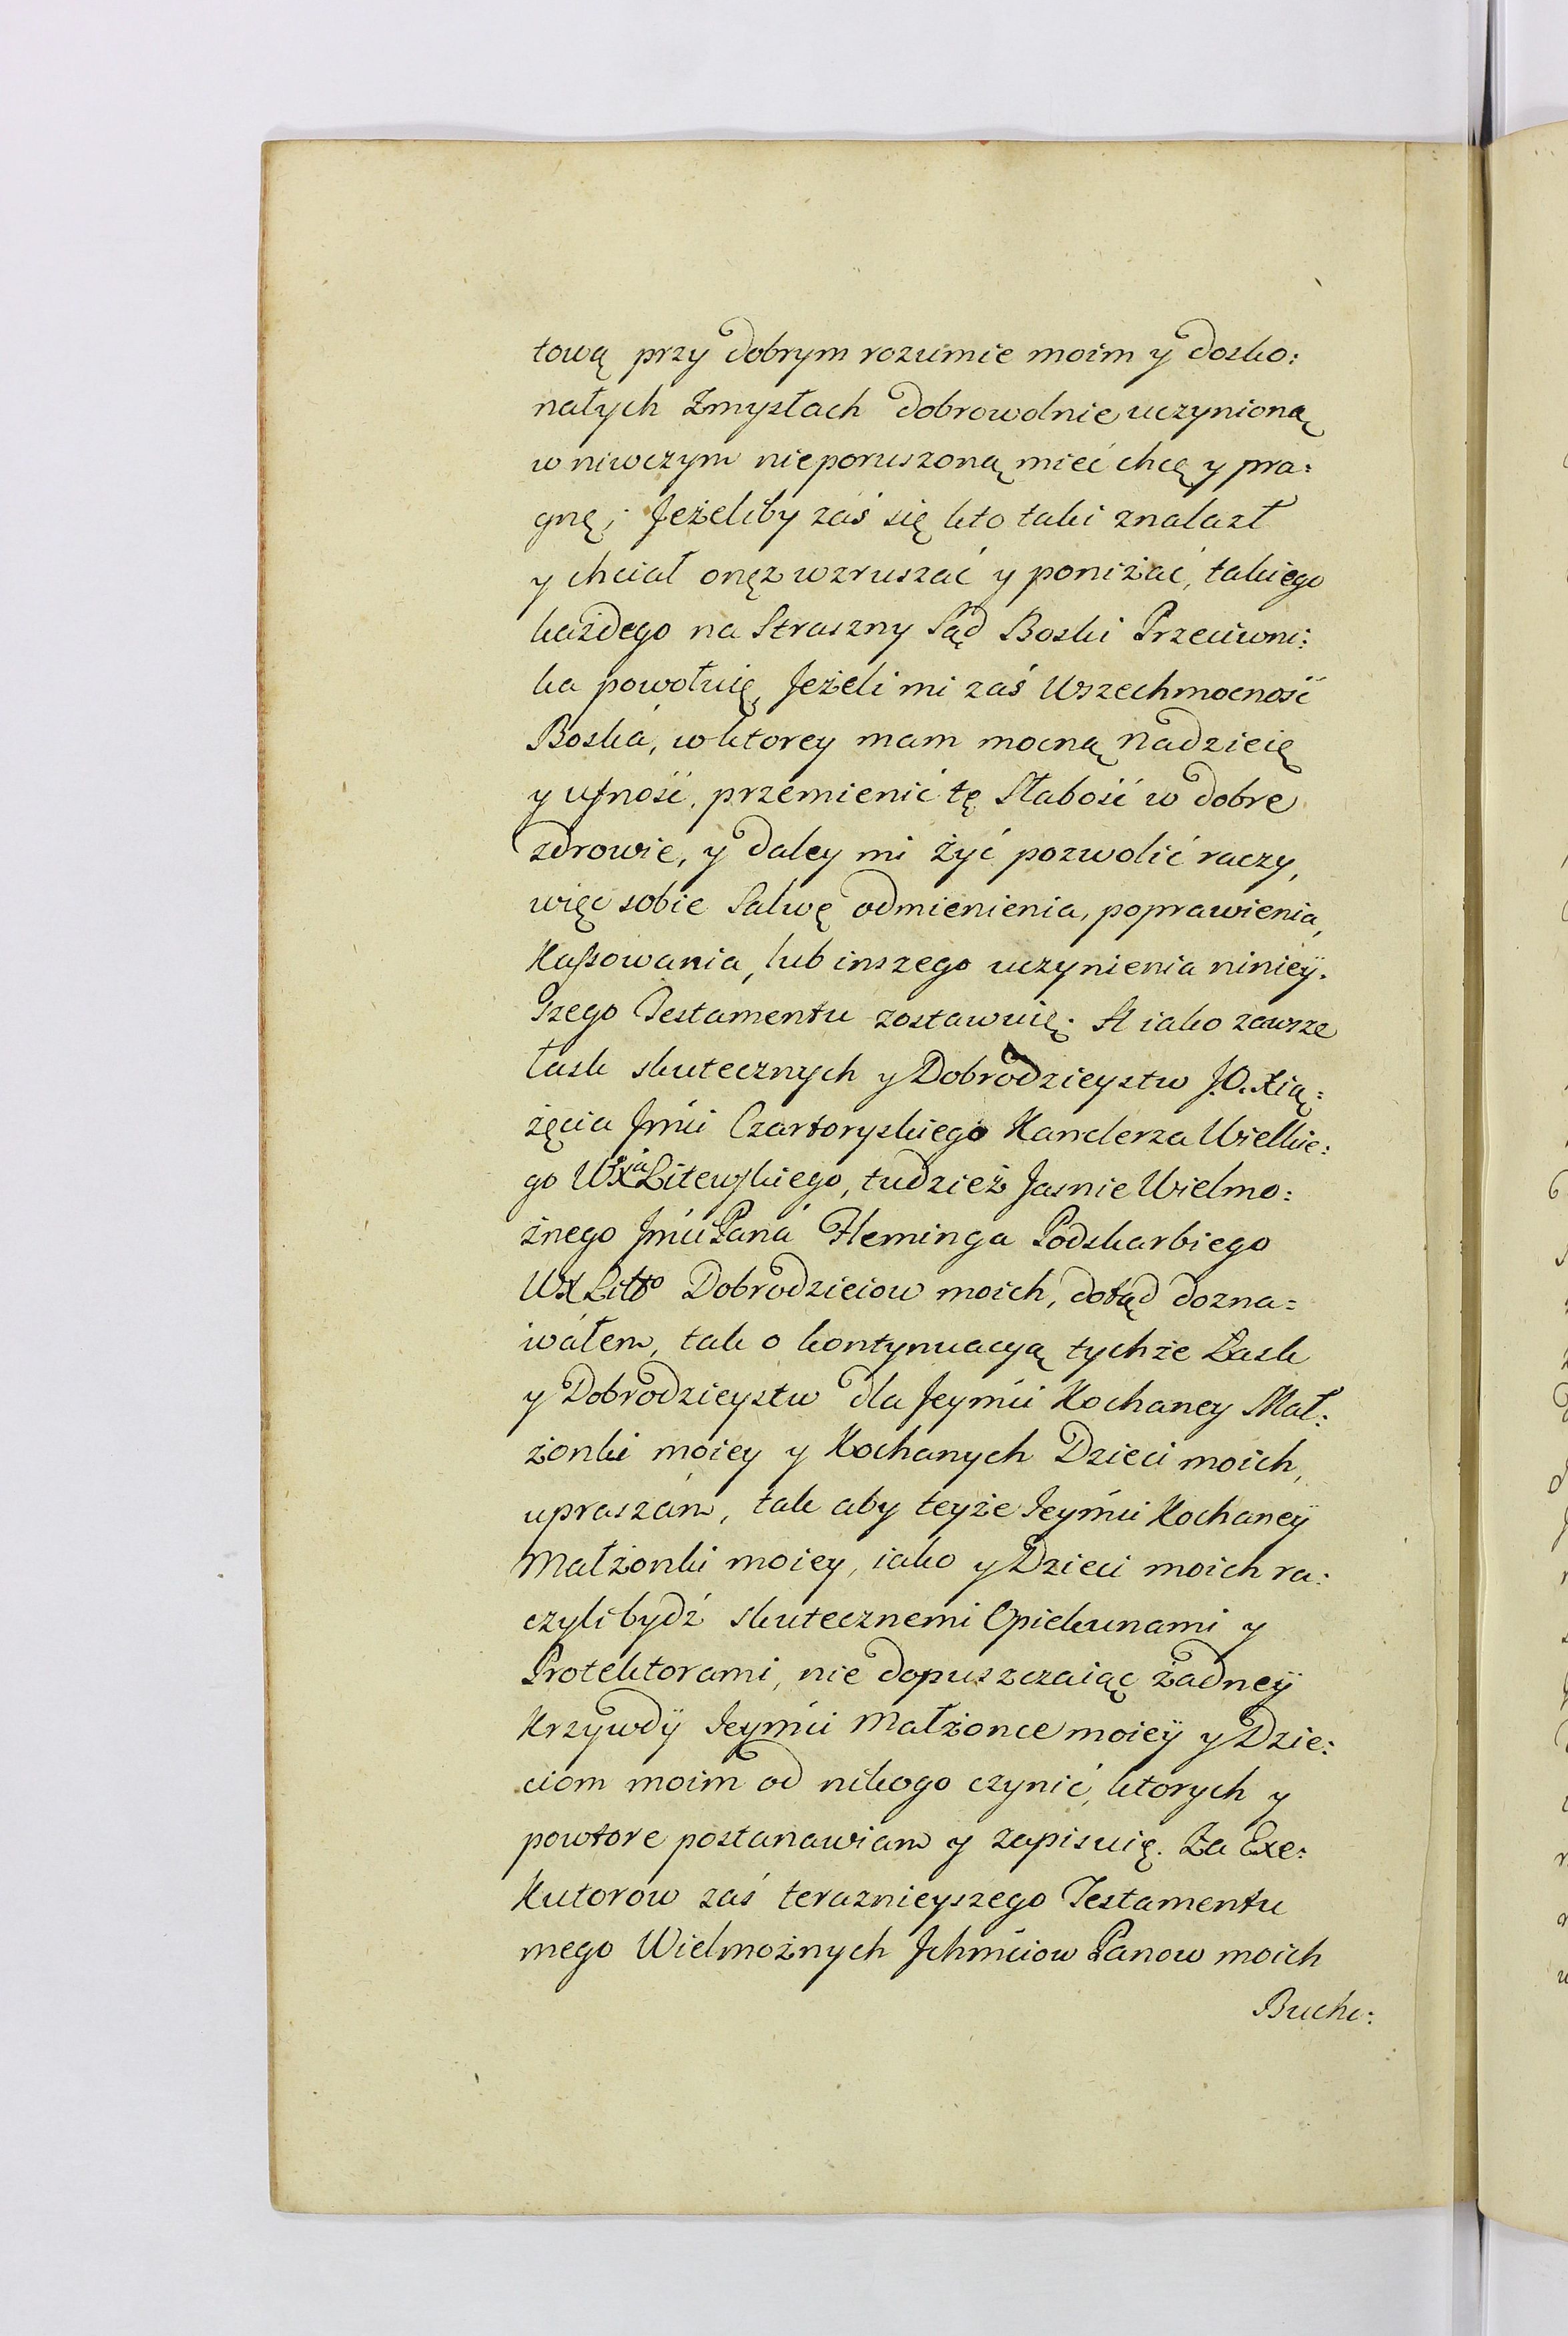 tową przy dobrym rozumie moim y dosko:
nałych Zmysłach dobrowolnie uczynioną
w niwczym nieporuszoną mieć chcę y pra:
gnę; Jeżeliby zaś się kto taki znalazł
y chciał onęż wzruszać y poniżać, takiego
każdego na Straszny Sąd Boski Przeciwni:
ka powołuię, Jeżeli mi zaś Wszechmocność
Boska, w ktorey mam mocną nadzieię
y ufność, przemienić tę Słabość w dobre
zdrowie, y daley mi żyć pozwolić raczy,
więc sobie Salwę odmienienia, poprawienia,
Kassowania, lub inszego uczynienia niniey:
szego Testamentu zostawuię. A iako zawsze
łask skutecznych y Dobrodzieystw J.O. Xią:
żęcia Jmći Czartoryskiego Kanclerza Wielkie:
go WXa Litewskiego, tudzież Jasnie Wielmo:
żnego Jmći Pana Fleminga Podskarbiego
WX Litto Dobrodzieiow moich, dotąd dozna=
wałem, tak o kontynuacyą tychże Łask
y Dobrodzieystw dla Jeymći Kochaney Mał:
żonki moiey y Kochanych Dzieci moich,
upraszam, tak aby teyże Jeymći Kochaney
Małżonki moiey, iako y Dzieci moich ra:
czyli bydź skutecznemi Opiekunami y
Protektorami, nie dopuszczaiąc żadney
Krzywdy Jeymći Małżonce moiey y Dzie:
ciom moim od nikogo czynić, ktorych y
powtore postanawiam y zapisuię. Za Exe:
kutorow zaś teraznieyszego Testamentu
mego Wielmożnych Jchmćiow Panow moich
Buch: